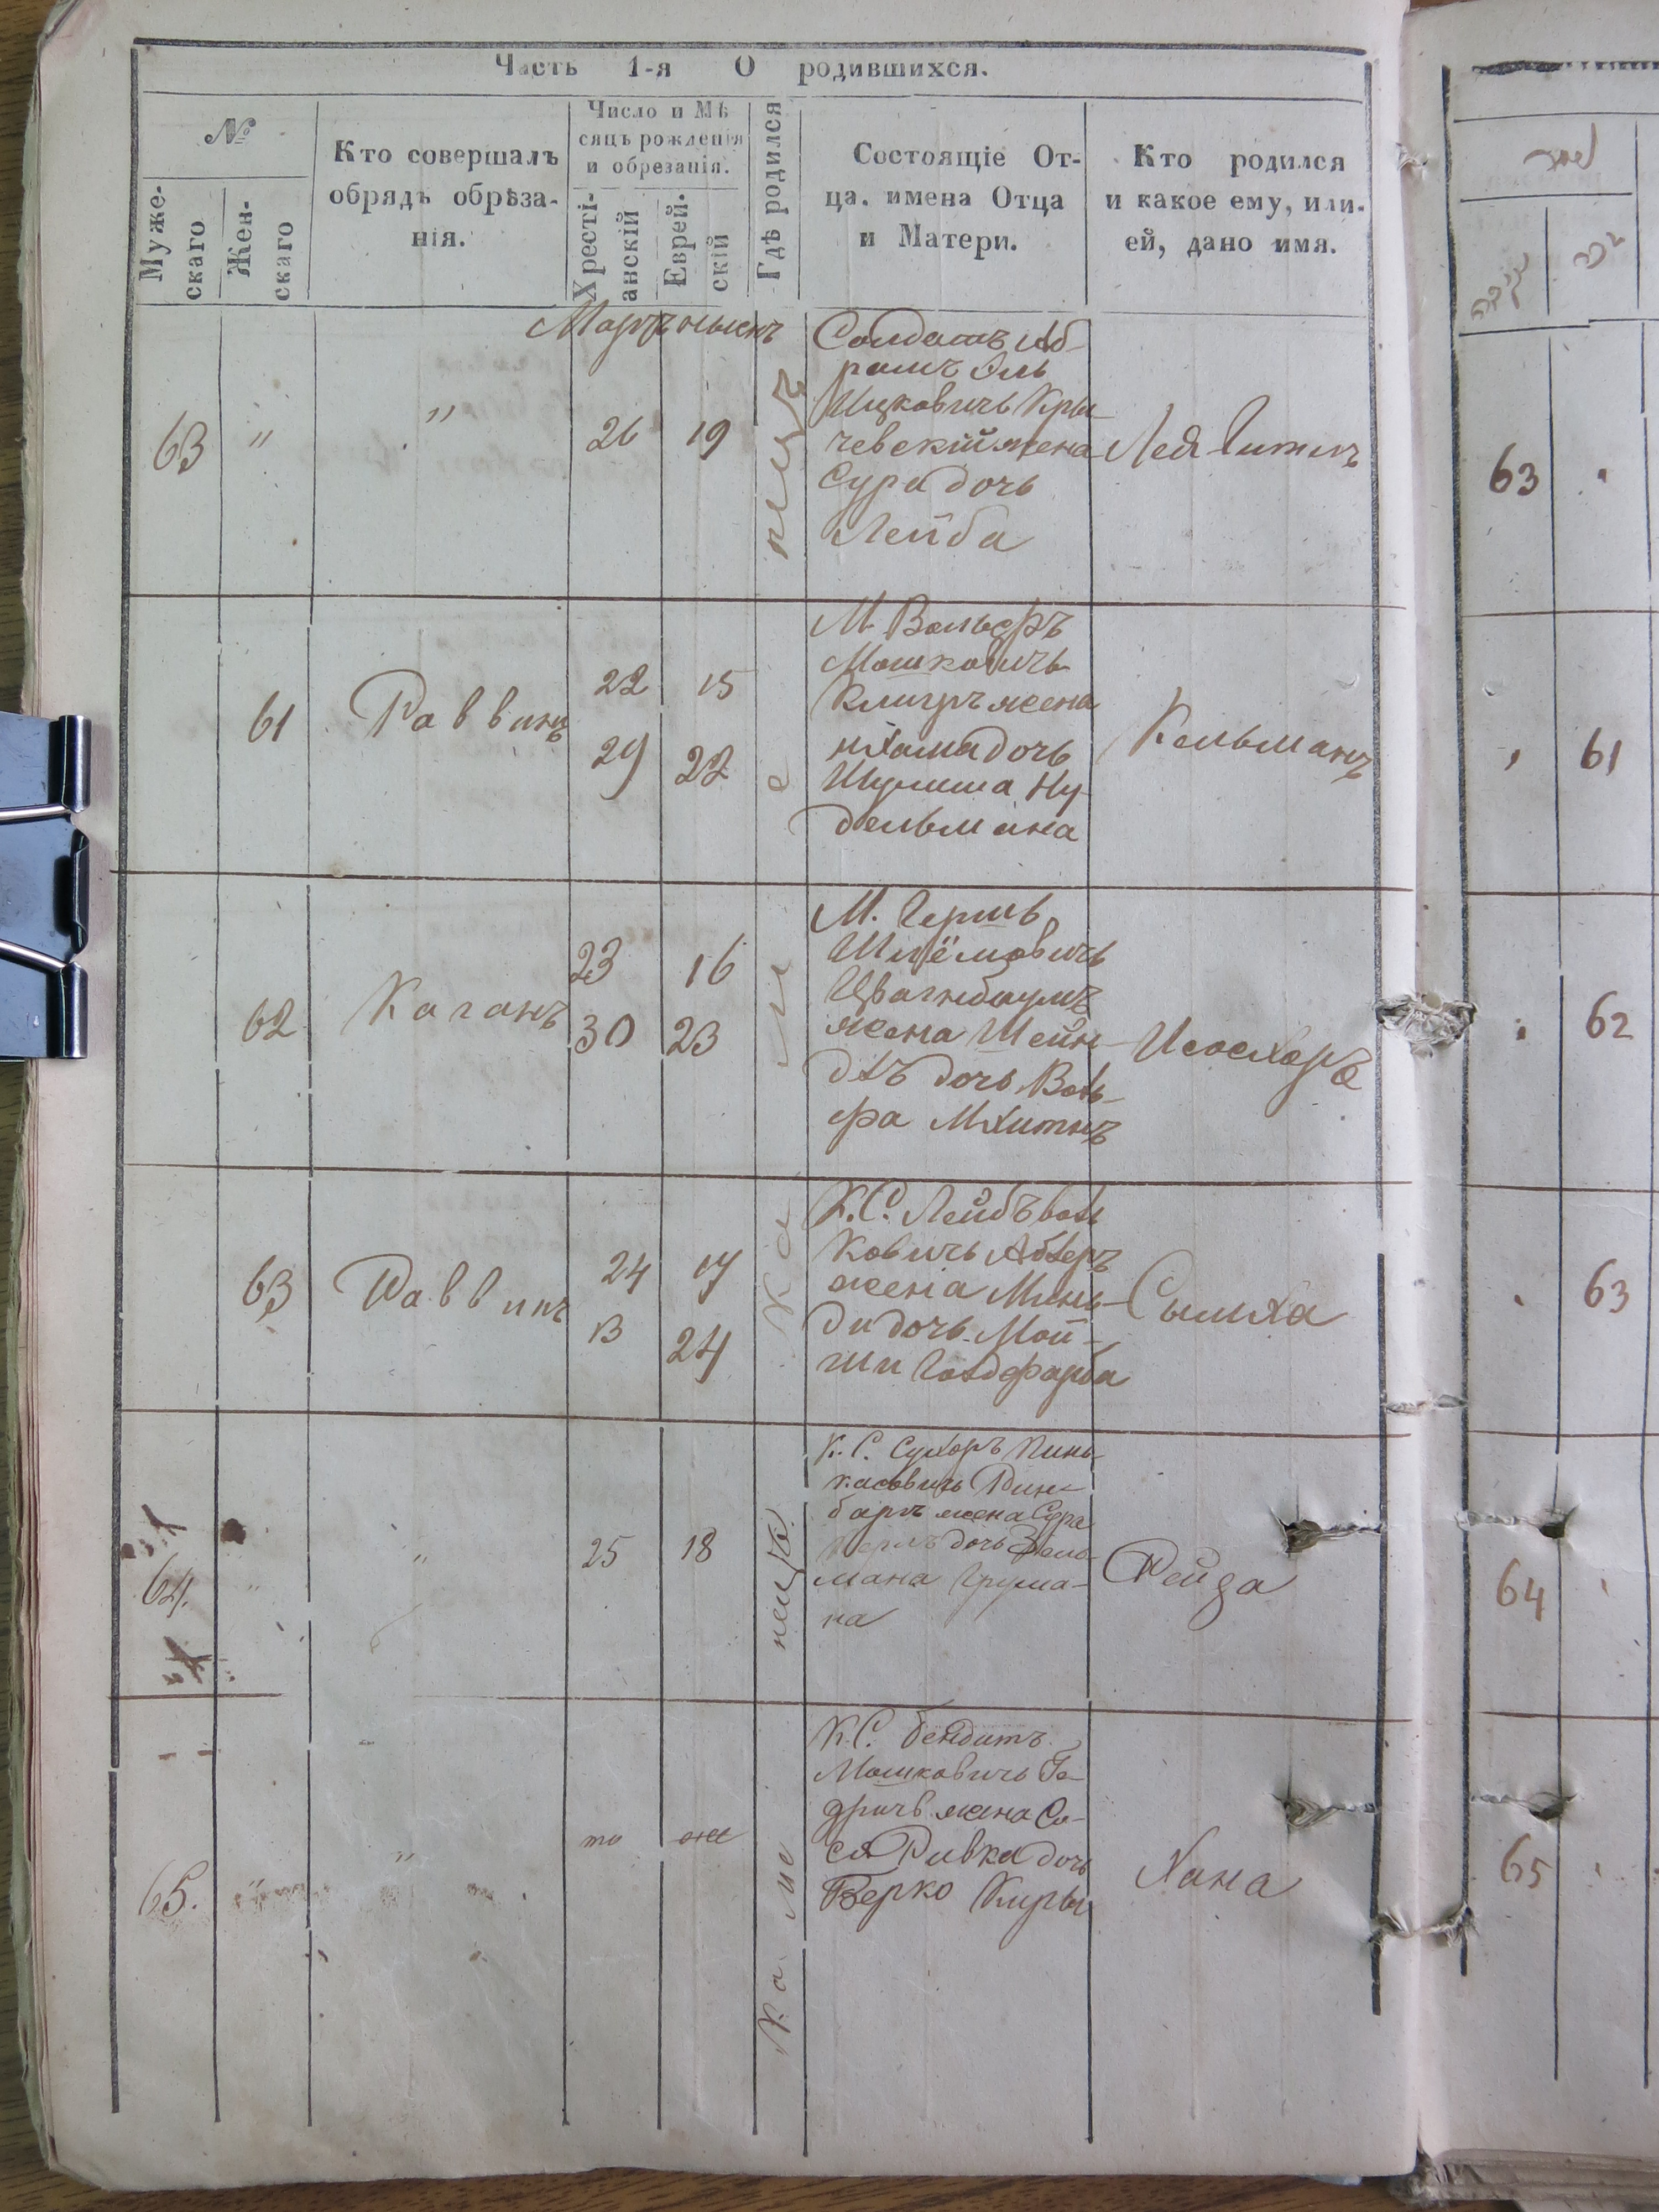 Часть 1-я О родившихся.
№
Муже-
скаго
Жен-
скаго
Кто совершалъ
обрядъ обрѣза-
нія.
Число и Мѣ
сяцъ рожденія
и обрезанія.
Хресті-
анскій
Еврей-
скій
Гдѣ родился
Состоящіе От-
ца, имена Отца
и Матери.
Кто родился
и какое ему, или-
ей, дано имя.
Мартъ
63 " " 26 19
Солдатъ Аб-
рамъ Эль
Ицковичъ Кры-
чевскій жена
Сура дочь
Лейба
Лея Гитль
61 Раввинъ
22 15
29 22
М. Вольфъ
Мошковичъ
жена
дочь
Ну-
дельмана
Кельманъ
62 Каганъ
23 16
30 23
М. Гершъ
Шлёмовичъ
Цвагнбаумъ
жена Шейн-
дль дочь Воль-
фа
Исосхоръ
63 Раввинъ
24 17
В 24
К. С. Лейбъ Воль
ковичъ
жена Минь-
ди дочь Мой-
ши Голдфарба
Сымха
64. " " 25 18
К. С. Сухоръ Пинь-
касовичъ
жена Сура
Перлъ дочь Зель-
мана Грума-
на
Рейза
65. " " то оже
К. С. Бендитъ
Мошковичъ Ге-
жена Со-
ся Ривка дочь
Берко
Хана
Каменица
Каменица
63
61
62
63
64
65